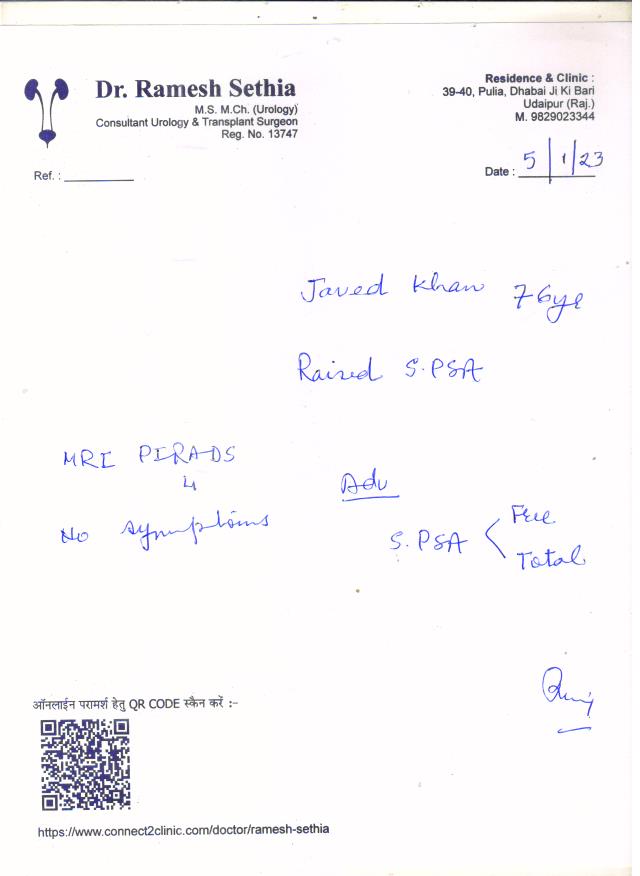 Dr. Ramesh Sethia
M.S. M.Ch. (Urology)
Consultant Urology & Transplant Surgeon
Reg. No. 13747
Residence & Clinic :
39-40, Pulia, Dhabai Ji Ki Bari
Udaipur (Raj.)
M. 9829023344
Ref. :
Date : 5/1/23
Javed Khan 76yr
Raised S.PSA
MRI PIRADS
4
No symptoms
Adv
S.PSA < Free
Total
ऑनलाईन परामर्श हेतु QR CODE स्कैन करें :-
https://www.connect2clinic.com/doctor/ramesh-sethia